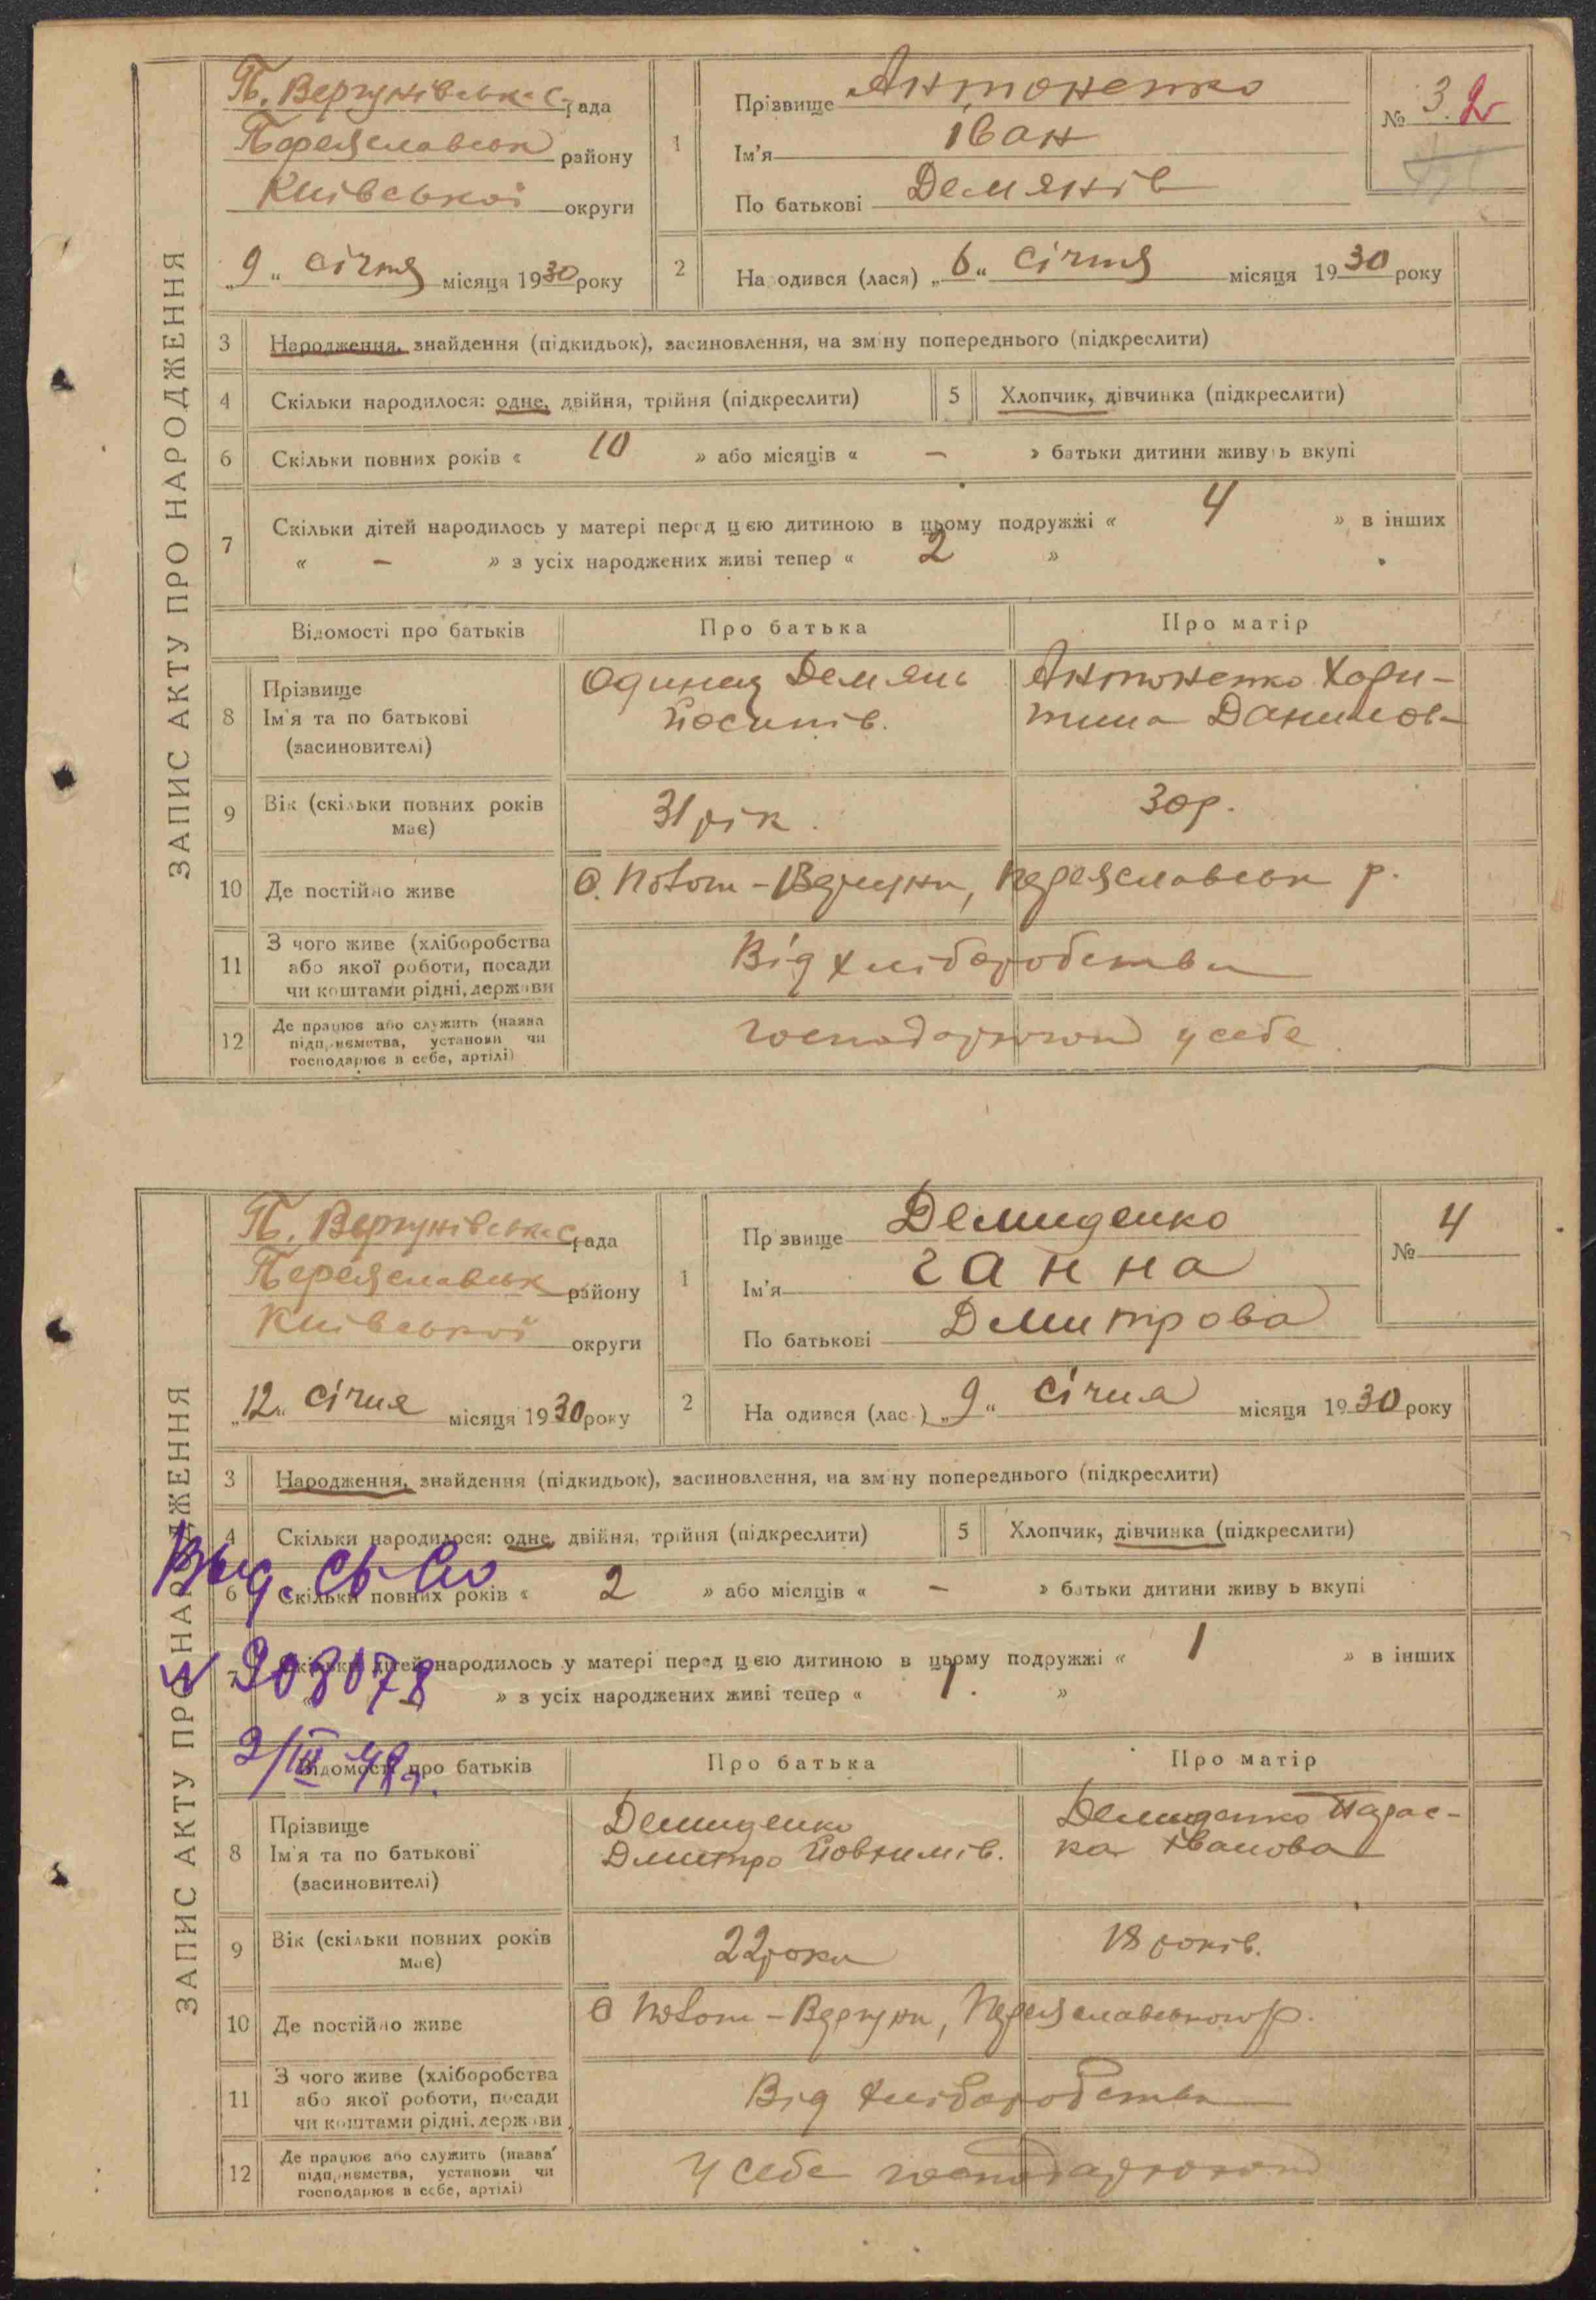 ЗАПИС АКТУ ПРО НАРОДЖЕННЯ
П. Вергунівська с/рада
Переяславськ району
Київської округи
„9“ січня місяця 1930 року
1
Прізвище Антоненко
Ім'я Іван
По батькові Демянів
№ 3. 2
2 На одився (лася) „6“ січня місяця 1930 року
3 Народження, знайдення (підкидьок), засиновлення, на зміну попереднього (підкреслити)
4 Скільки народилося: одне, двійня, трійня (підкреслити) 5 Хлопчик, дівчинка (підкреслити)
6 Скільки повних років « 10 » або місяців « – » батьки дитини живуть вкупі
7 Скільки дітей народилось у матері перед цею дитиною в цьому подружжі « 4 » в інших
« – » з усіх народжених живі тепер « 2 »
Відомості про батьків Про батька Про матір
8 Прізвище
Ім'я та по батькові
(засиновителі)
Одинец Демянь
Йосипів.
Антоненко Хори-
тина Данилов-
9 Вік (скільки повних років
має)
31 рік. 30 р.
10 Де постійно живе с. Помоч-Вергуни, Переяславськ р.
11 З чого живе (хліборобства
або якої роботи, посади
чи коштами рідні, держави
Від хліборобства
12 Де працює або служить (назва
підприємства, установи чи
господарює в себе, артілі)
господарюют у себе
ЗАПИС АКТУ ПРО НАРОДЖЕННЯ
П. Вергунівська с/рада
Переяславськ району
Київської округи
„12“ січня місяця 1930 року
1
Прізвище Демиденко
Ім'я Ганна
По батькові Дмитрова
№ 4
2 На одився (лас ) „9“ січня місяця 1930 року
3 Народження, знайдення (підкидьок), засиновлення, на зміну попереднього (підкреслити)
4 Скільки народилося: одне, двійня, трійня (підкреслити) 5 Хлопчик, дівчинка (підкреслити)
Выд. Св-во
6 Скільки повних років « 2 » або місяців « – » батьки дитини живу ь вкупі
7 Скільки дітей народилось у матері перед цею дитиною в цьому подружжі « 1 » в інших
№ 908078
» з усіх народжених живі тепер « 1. »
2/III 48 г.
Відомості про батьків Про батька Про матір
8 Прізвище
Ім'я та по батькові
(засиновителі)
Демиденко
Дмитро Йовхимів.
Демиденко Парас-
ка Іванова
9 Вік (скільки повних років
має)
22 роки 18 років.
10 Де постійно живе с. Помоч-Вергуни, Переяславського р.
11 З чого живе (хліборобства
або якої роботи, посади
чи коштами рідні, держави
Від хліборобства
12 Де працює або служить (назва
підприємства, установи чи
господарює в себе, артілі)
У себе господарюют